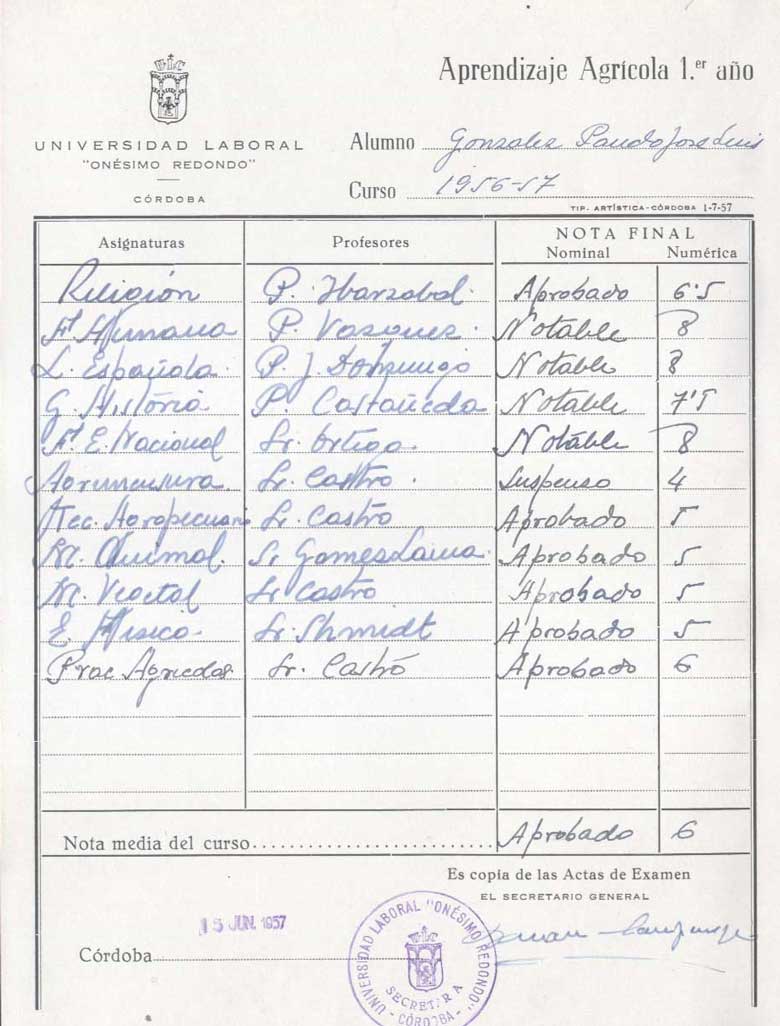 Aprendizaje Agrícola 1.er año
UNIVERSIDAD LABORAL
"ONÉSIMO REDONDO"
CÓRDOBA
Alumno Gonzalez Pando Jose Luis
Curso 1956-57
TIP. ARTÍSTICA-CÓRDOBA 1-7-57
Asignaturas Profesores NOTA FINAL
Nominal Numérica
Religión P. Ibarzabal Aprobado 6'5
F. Humana P. Vazquez Notable 8
L. Española P. J. Domingo Notable 8
G. Historia P. Castañeda Notable 7'5
F. E. Nacional Sr. Ortega Notable 8
Agrimensura Sr. Castro Suspenso 4
Tec. Agropecuaria Sr. Castro Aprobado 5
M. Animal Sr Gomez Aprobado 5
M. Vegetal Sr Castro Aprobado 5
E. Fisica Sr. Shmidt Aprobado 5
Prac Agricolas Sr. Castro Aprobado 6
Nota media del curso Aprobado 6
Es copia de las Actas de Examen
EL SECRETARIO GENERAL
15 JUN. 1957
Córdoba
UNIVERSIDAD LABORAL "ONÉSIMO REDONDO"
SECRETARIA
- CÓRDOBA -